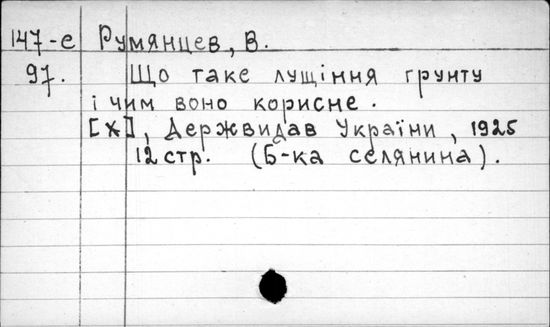 147-е Румянцев, В.
97. Що таке лущіння грунту
і чим воно корисне.
[Х], Держвидав України, 1925
12 стр. (Б-ка селянина).